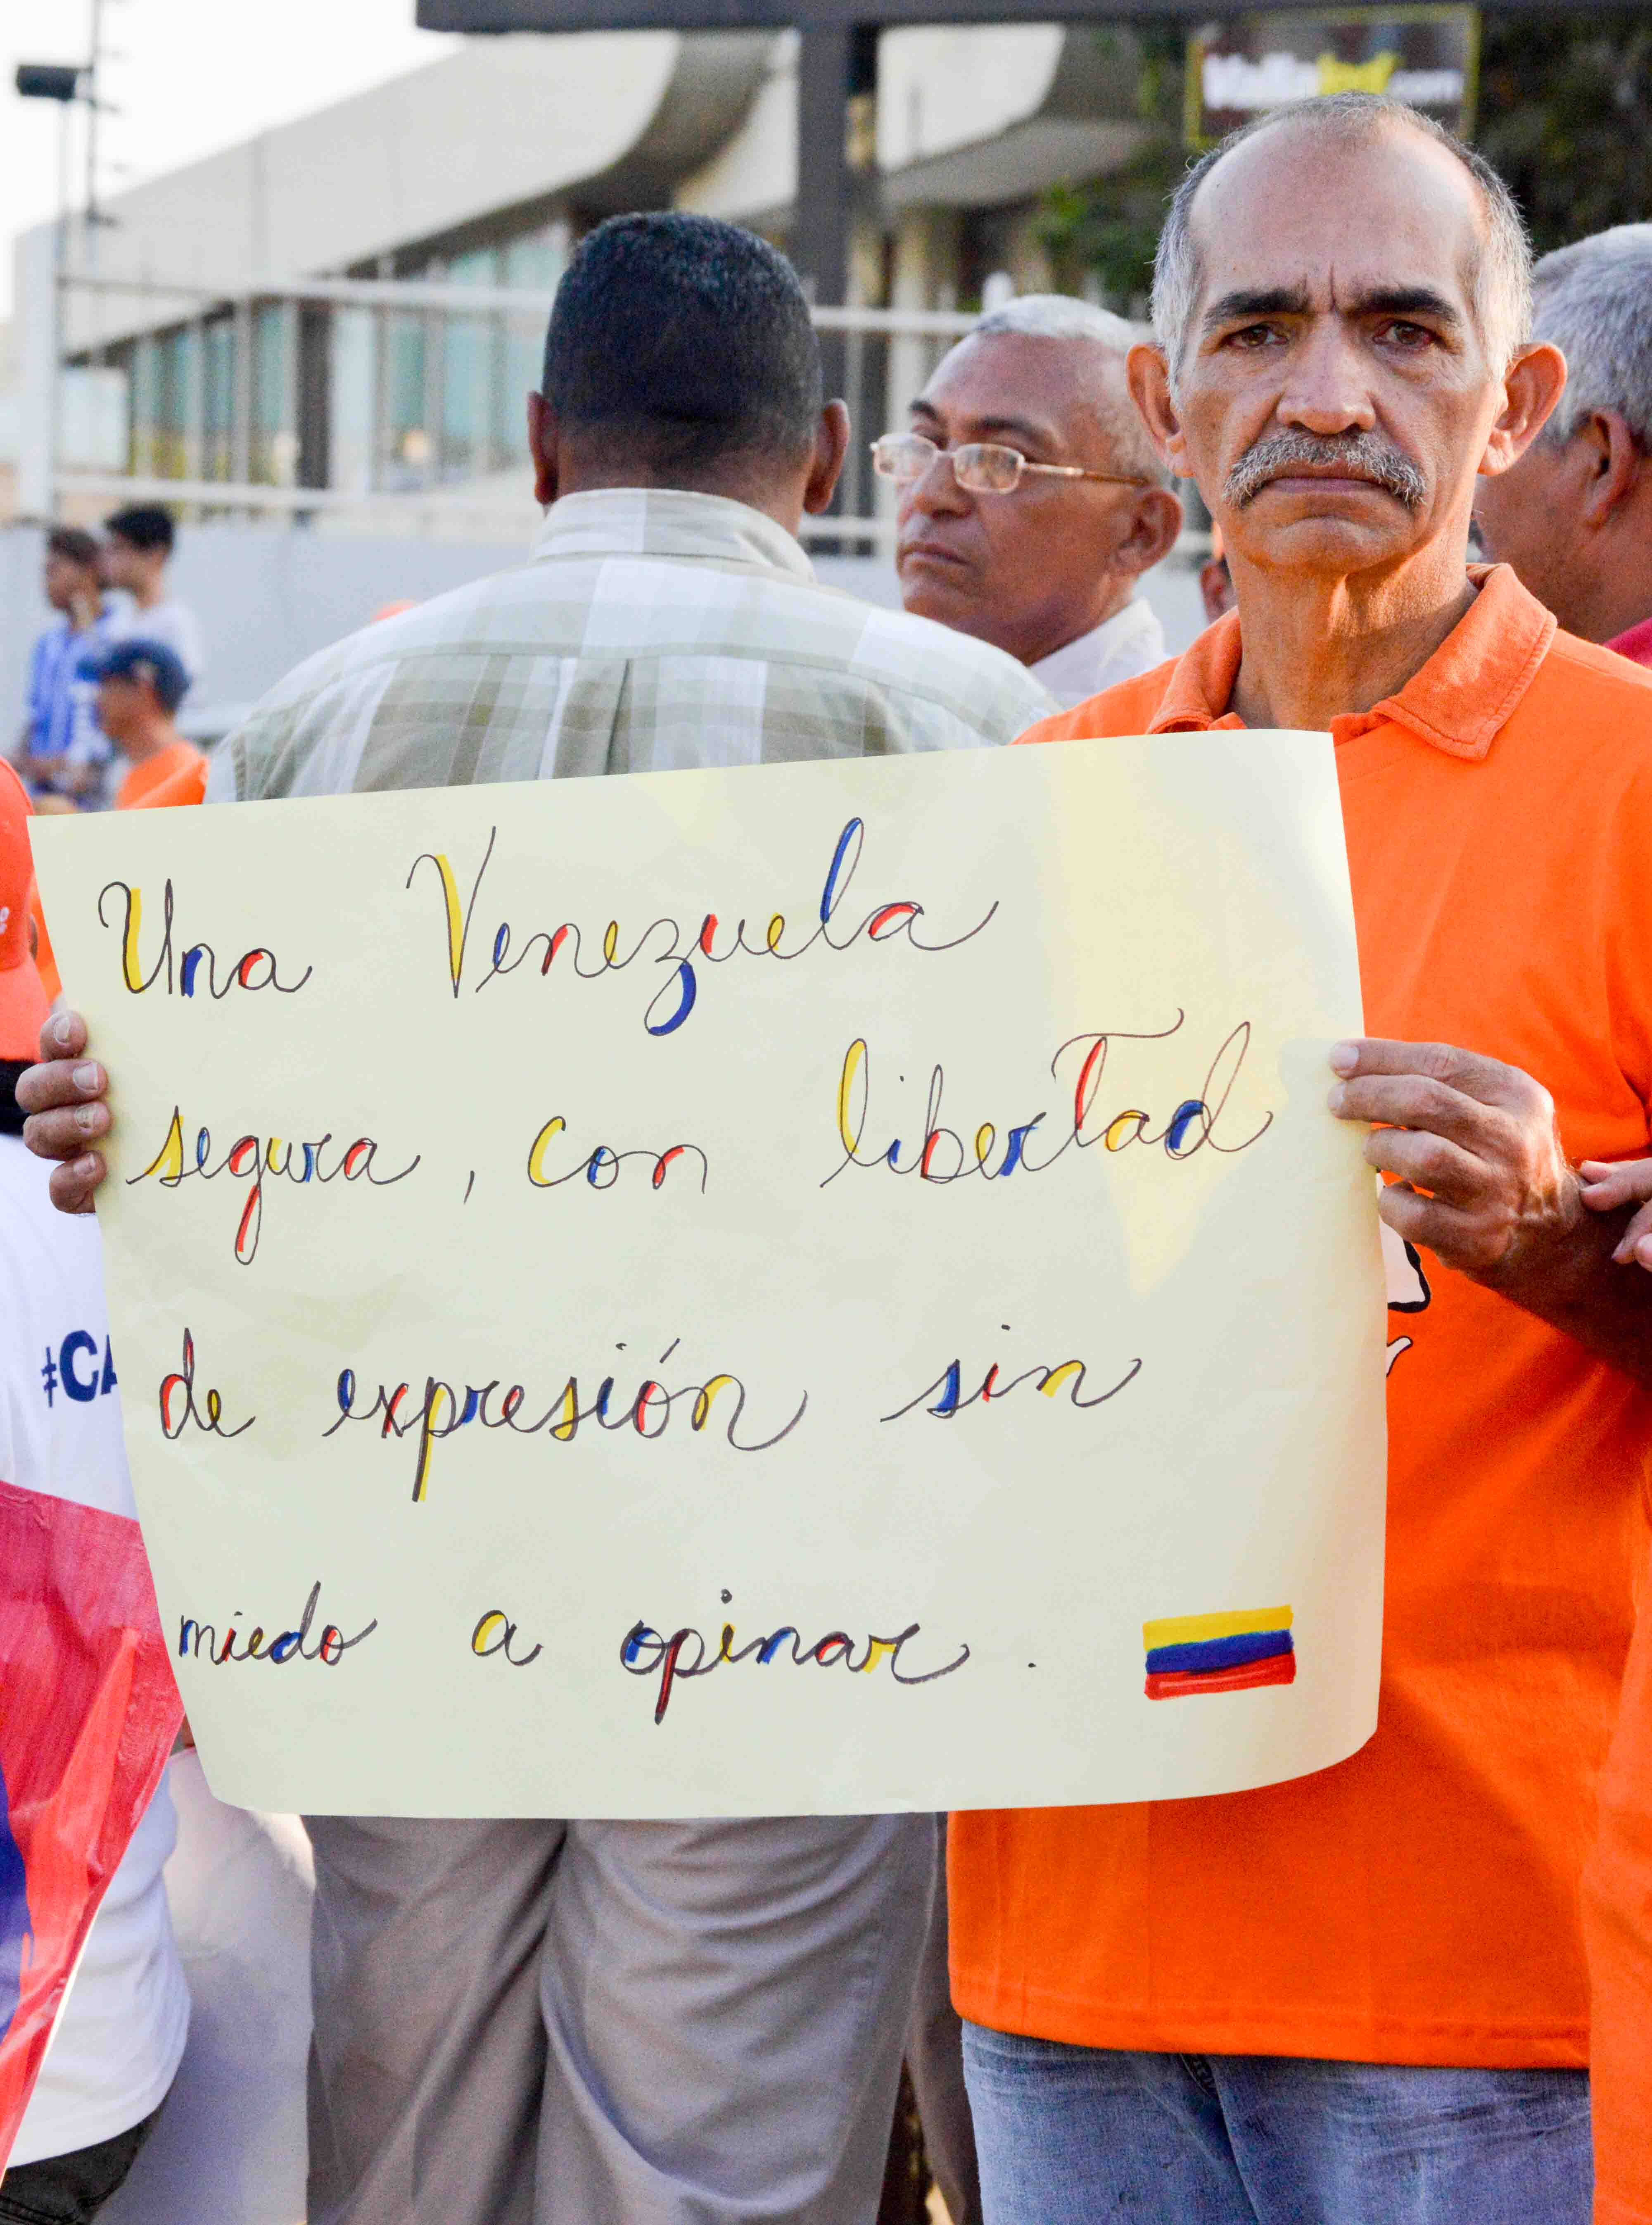 Una Venezuela
segura, con libertad
de expresión sin
miedo a opinar.
#CA